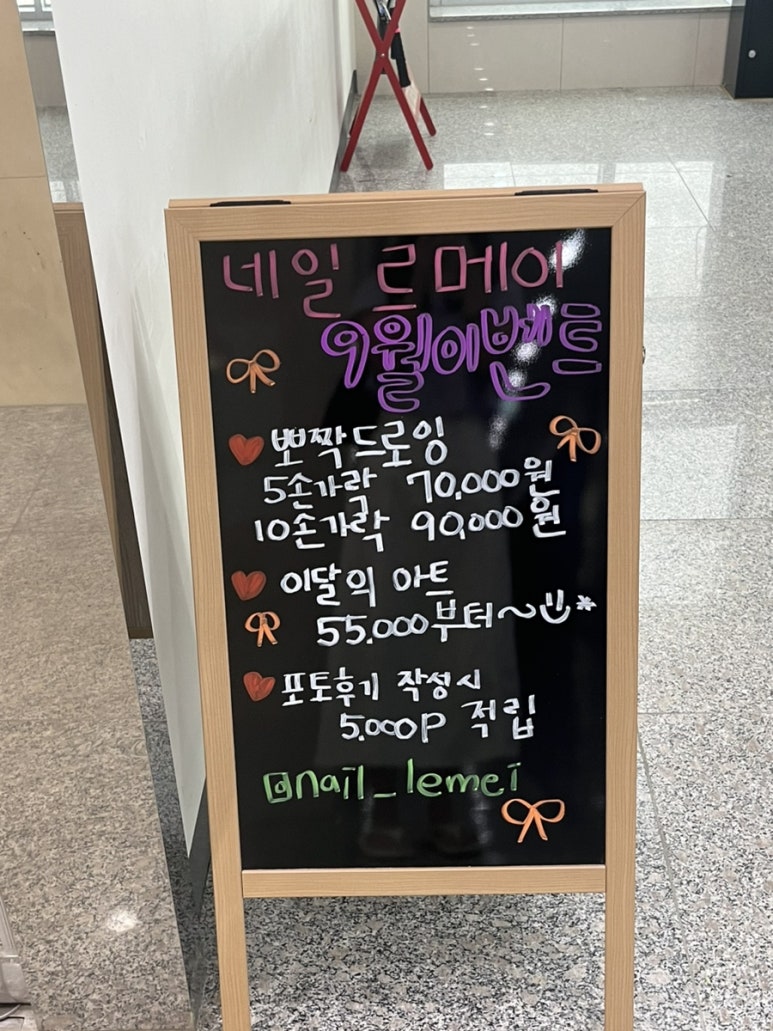 네일 르메이
9월이벤트
뽀짝드로잉
5손가락 70,000원
10손가락 90,000원
이달의 아트
55,000부터~
포토후기 작성시
5,000P 적립
@nail_lemei